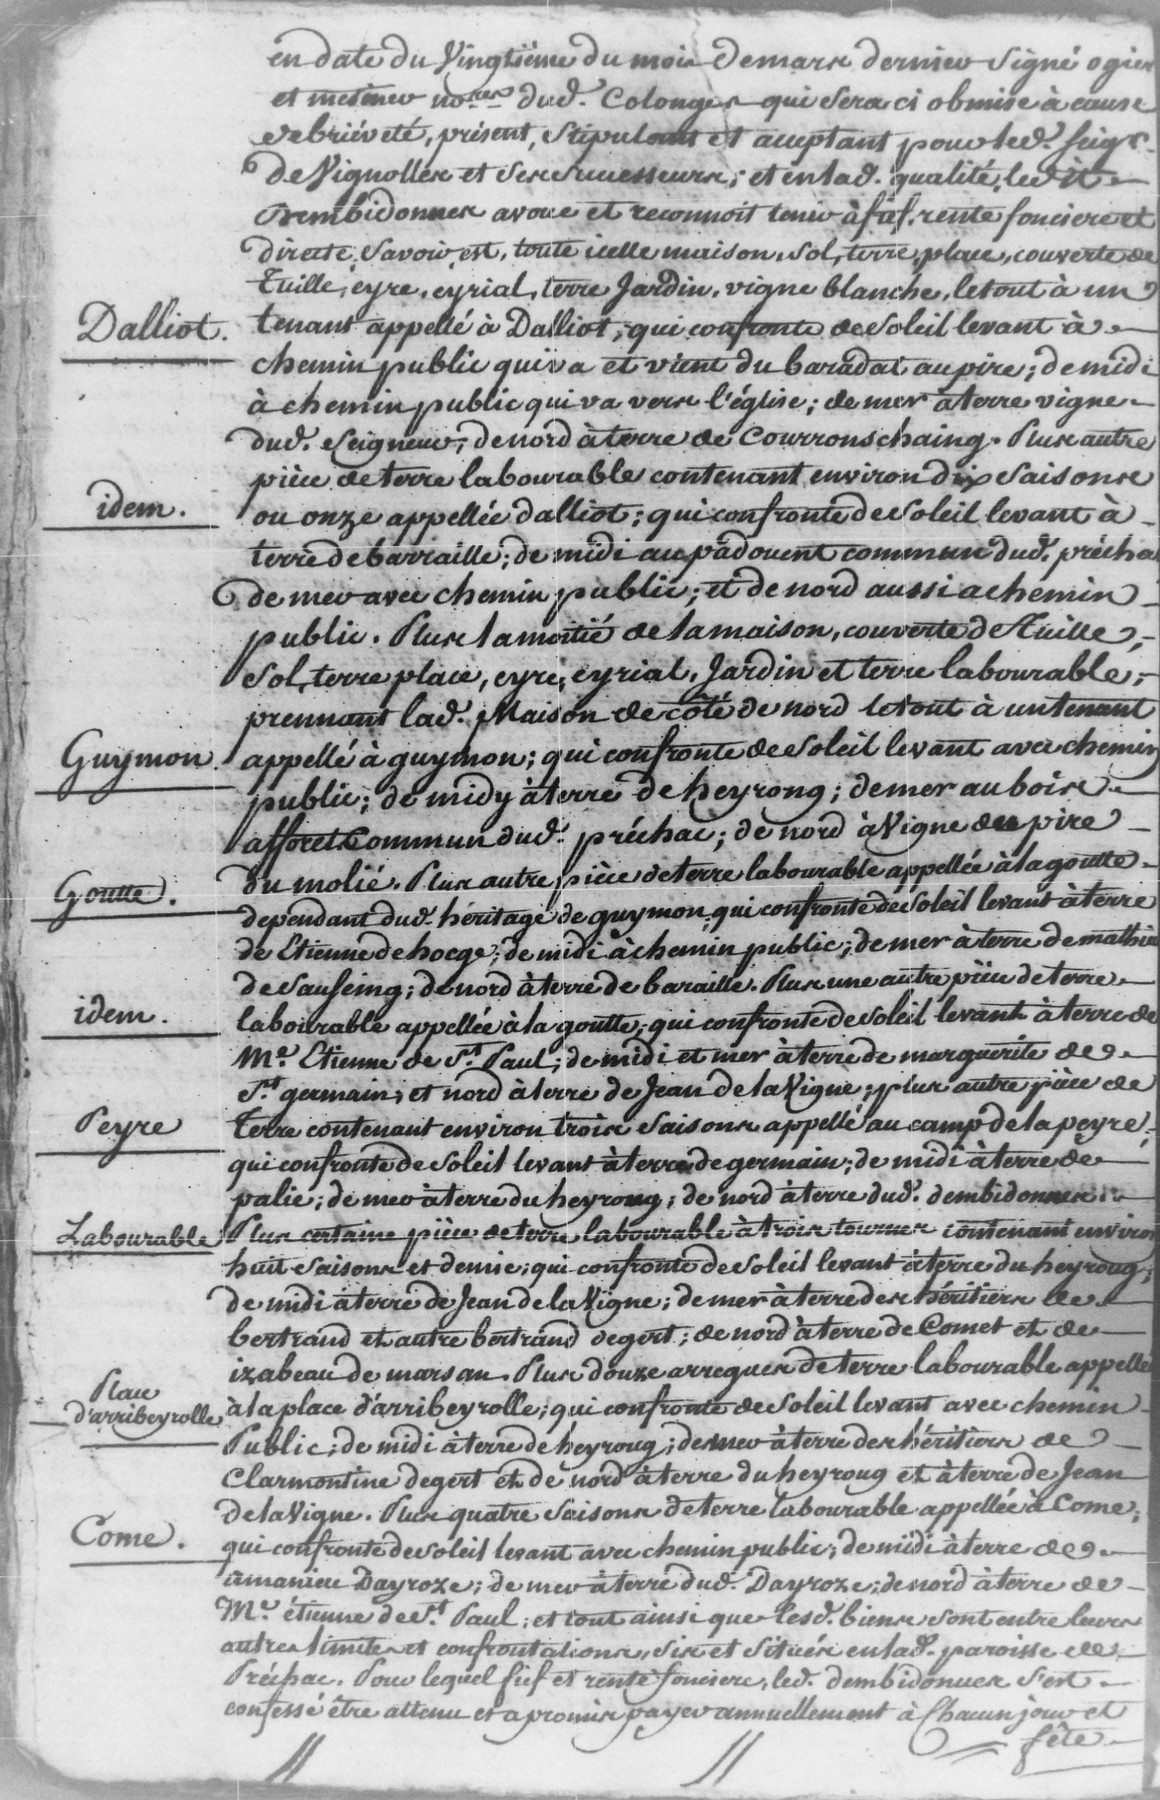 en date du Vingtiéme du mois de mars dernier Signé ogier
et mesmer no.res dud. Colonges qui sera ci obmise à cause
de briéveté, présent, stipulant et acceptant pour led. seigr.
de Vignolles et ses successeurs; et en lad. qualité, led.
Dembidonnes avoue et reconnoit tenir à fief, rente fonciere et
directe, savoir est, toute icelle maison, sol, terre, place, couverte de
Tuille, eyre, eyrial, terre Jardin, vigne blanche, le tout à un
Dalliot. tenant appellé à Dalliot; qui confronte de soleil levant à
chemin public qui va et vient du baradat au pire; de midi
à chemin public qui va vers l'église; de mer à terre vigne
dud. Seigneur; de nord à terre de Courronschaing. Plus autre
piéce de terre labourable contenant environ dix saisons
idem. ou onze appellée dalliot; qui confronte de soleil levant à
terre de barraille; de midi au padouent commun dud. préchac
de mer avec chemin public; et de nord aussi a chemin
public. Plus la moitié de la maison, couverte de Tuille,
Sol, terre place, eyre, eyrial, Jardin et terre labourable,
prennant lad. Maison de côté de nord le tout à un tenant
Guymon. appellé à guymon; qui confronte de soleil levant avec chemin
public; de midy à terre de heyroug; de mer au bois
afforet Commun dud. préchac; de nord à Vigne du pire
du molié. Plus autre piéce de terre labourable appellée à la goutte
Goutte. dependant dud. héritage de guymon, qui confronte de soleil levant à terre
de Etienne de hocge; de midi à chemin public; de mer à terre de mathieu
de Sauseing; de nord à terre de baraille. Plus une autre piéce de terre
idem. labourable appellée à la goutte; qui confronte de soleil levant à terre de
Me. Etienne de St. Paul; de midi et mer à terre de marguerite de
St. germain; et nord à terre de Jean de la Vigne; plus autre piéce de
Peyre Terre contenant environ trois saisons appellé au camp de la peyre;
qui confronte de soleil levant à terre de germain; de midi à terre de
palie; de mer à terre du heyroug; de nord à terre dud. dembidonnes.
Labourable Plus certaine piéce de terre labourable à trois tournes contenant environ
huit saisons et demie; qui confronte de soleil levant à terre du heyroug;
de midi à terre de Jean de la Vigne; de mer à terre des héritiers de
bertrand et autre bertrand degert; de nord à terre de Comet et de
izabeau de marsan. Plus douze arregues de terre labourable appellé
Place d'arribeyrolle à la place d'arribeyrolle; qui confronte de soleil levant avec chemin
Public; de midi à terre de heyroug; de mer à terre des héritiers de
Clarmontine degert et de nord à terre du heyroug et à terre de Jean
de la Vigne. Plus quatre saisons de terre labourable appellée à Come;
Come. qui confronte de soleil levant avec chemin public; de midi à terre de
amanieu Dayroze; de mer à terre dud. Dayroze; de nord à terre de
Me. étienne de St. Paul; et tout ainsi que lesd. biens sont entre leurs
autres limites et confrontations, sis et situés en lad. paroisse de
Préchac. Pour lequel fief et rente fonciere, led. dembidonnes s'est
confessé être attenu et a promis payer annuellement à Chacun jour et
fête